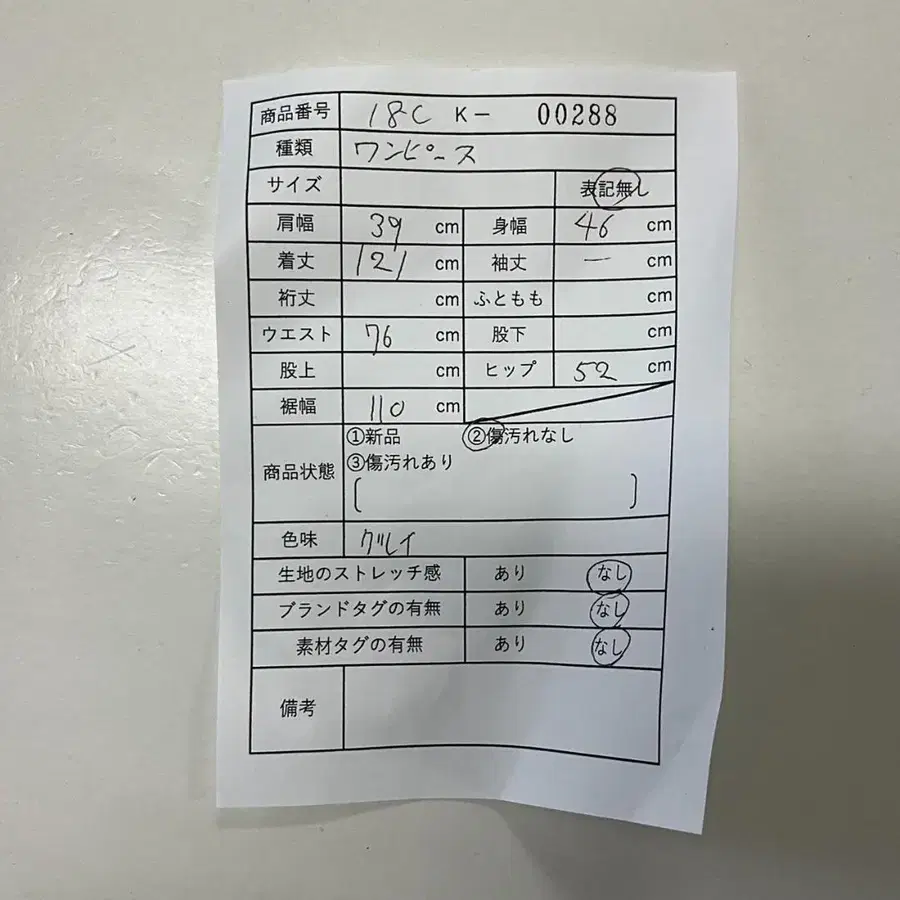 商品番号 18C K- 00288
種類 ワンピース
サイズ 表記無し
肩幅 39 cm 身幅 46 cm
着丈 121 cm 袖丈 — cm
裄丈 cm ふともも cm
ウエスト 76 cm 股下 cm
股上 cm ヒップ 52 cm
裾幅 110 cm
①新品 ②傷汚れなし
商品状態 ③傷汚れあり
[ ]
色味 グレイ
生地のストレッチ感 あり なし
ブランドタグの有無 あり なし
素材タグの有無 あり なし
備考